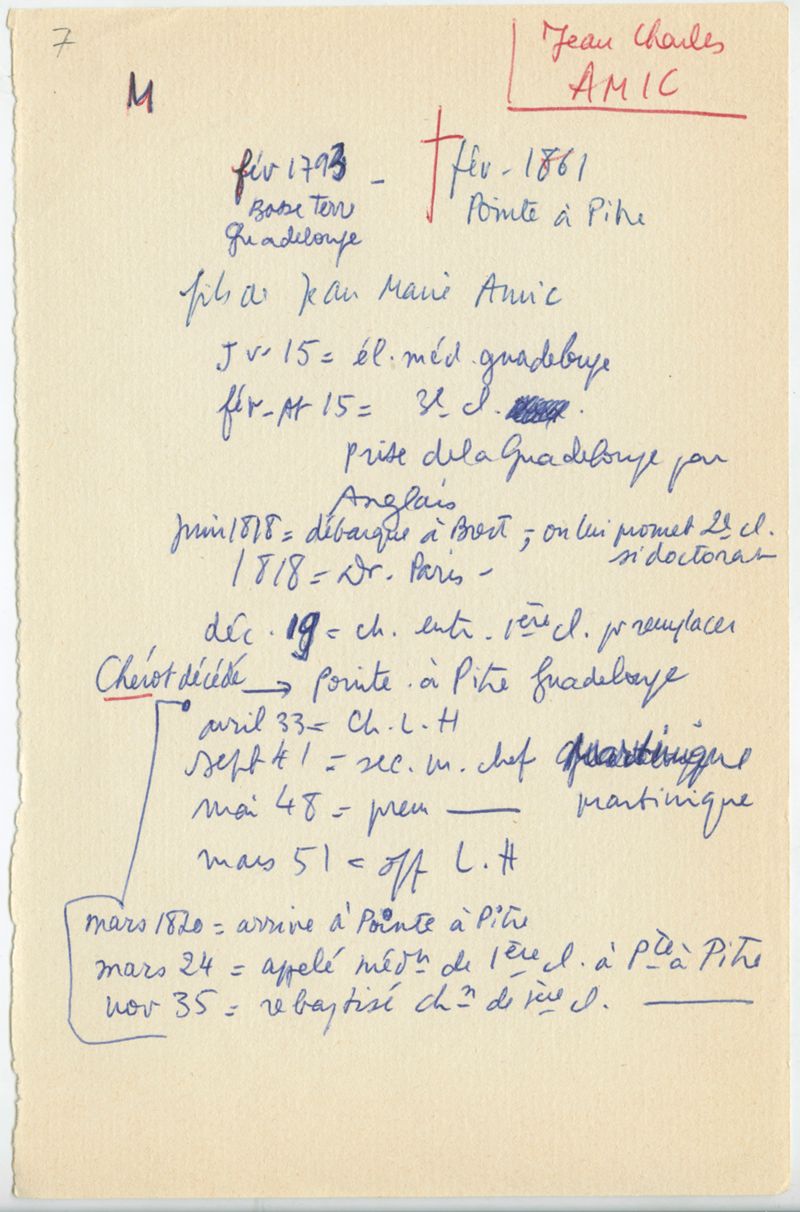 7
Jean Charles
AMIC
M
fév 1793 - † fév - 1861
Basse Terre
Guadeloupe
Pointe à Pitre
fils de Jean Marie Amic
Jv. 15 = él. méd. guadeloupe
fév - At 15 = 3e cl.
prise de la Guadeloupe par
Anglais
juin 1818 = débarque à Brest ; on lui promet 2e cl.
si doctorat
1818 = Dr. Paris -
déc. 19 = ch. entr. 1ère cl. pr remplacer
Chérot décédé → Pointe à Pitre Guadeloupe
avril 33 = Ch. L. H
sept 41 = sec. m. chef
mai 48 = prem —— martinique
mars 51 = off L. H
mars 1820 = arrive à Pointe à Pitre
mars 24 = appelé médn de 1ère cl. à Pte à Pitre
nov 35 = rebaptisé chn de 1ère cl. ——